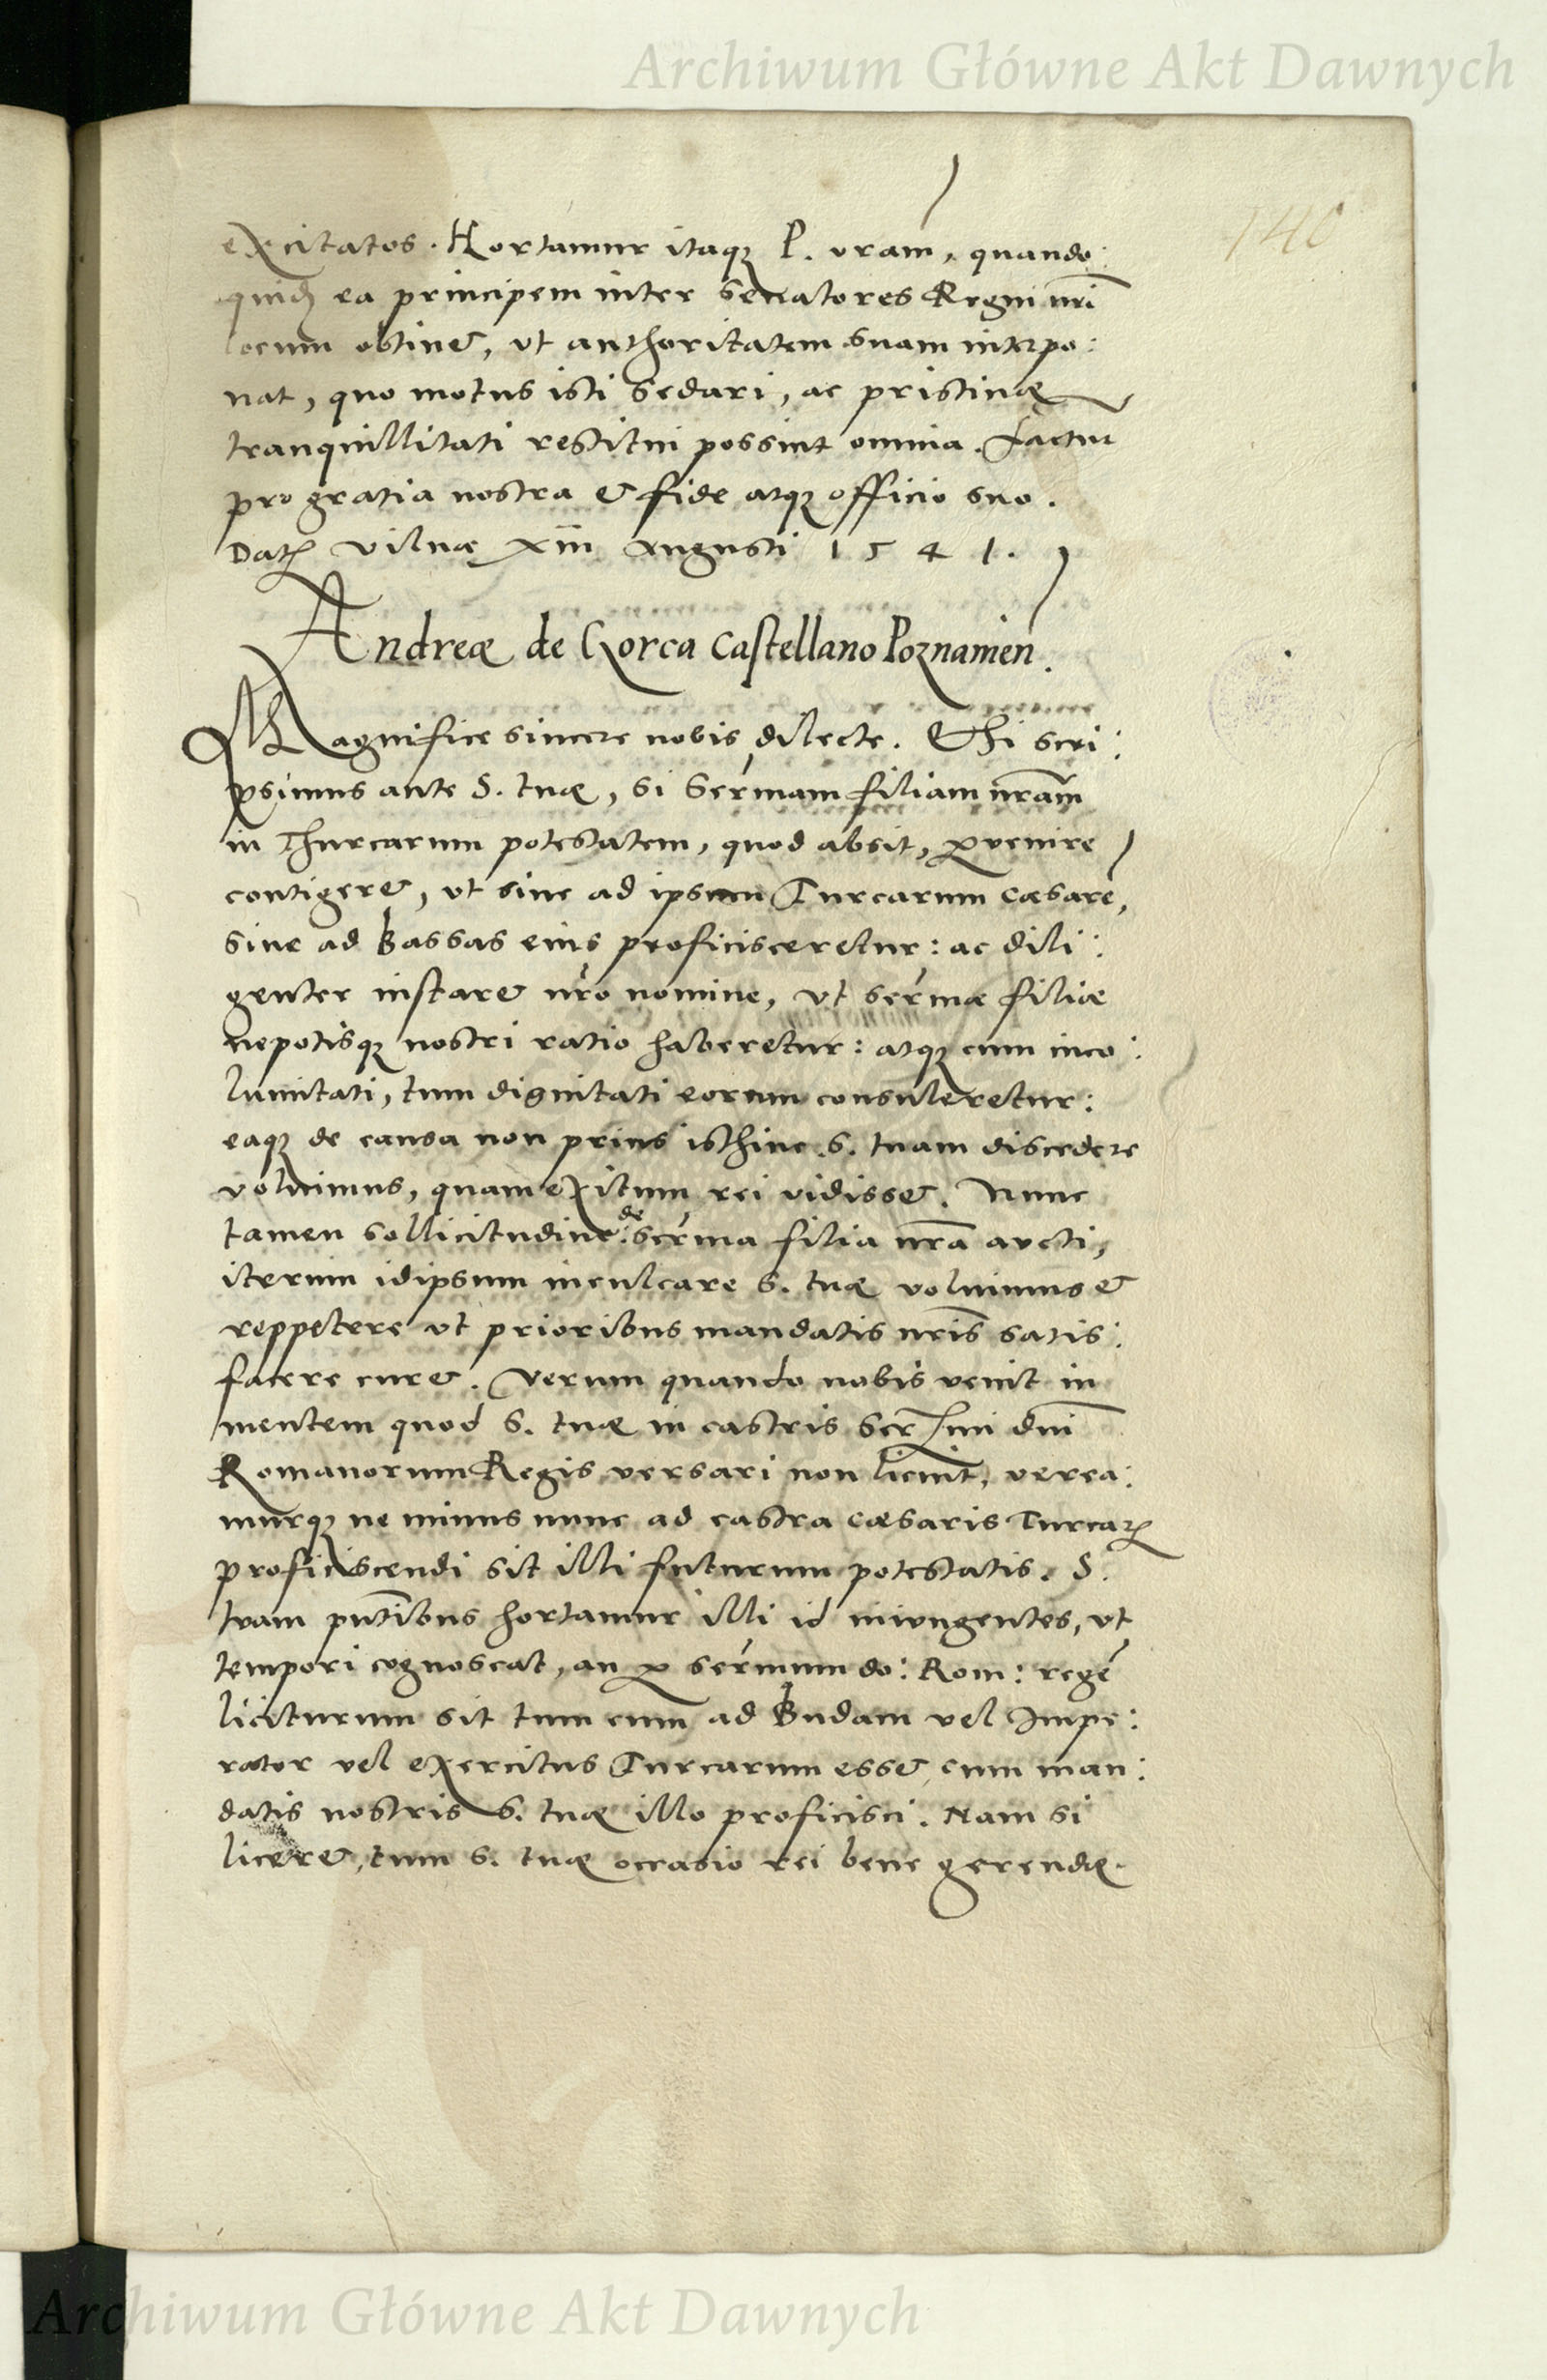 Archiwum Główne Akt Dawnych
140
excitatos. Hortamur itaqꝫ P. vram, quando:
quidꝫ ea principem inter senatores Regni nri
locum obtinet, vt authoritatem suam interpo:
nat, quo motus isti sedari, ac pristinæ
tranquillitati restitui possint omnia. Factur
pro gratia nostra et fide atqꝫ officio suo.
Datꝝ Vilnæ Augusti 1541.
Andreæ de Gorca Castellano Poznamien.
Magnifice sincere nobis dilecte. Etsi scri:
psimus ante S. tuæ, si Sermam filiam nram
in Thurcarum potestatem, quod absit, ꝑvenire
contigeret, vt siue ad ipsum Turcarum Cæsarē,
siue ad Bassas eius proficisceretur: ac dili:
genter instaret nro nomine, vt sermæ filiæ
nepotisqꝫ nostri ratio haberetur: atqꝫ cum inco:
lumitati, tum dignitati eorum consuleretur:
eaqꝫ de causa non prius isthinc S. tuam discedere
voluimus, quam exitum rei vidisset. Nunc
tamen sollicitudine de serma filia nra aucti,
iterum idipsum inculcare S. tuæ voluimus et
reppetere vt prioribus mandatis nris satis:
facere curet. Verum quando nobis venit in
mentem quod S. tuæ in castris Ser̄imi dni
Romanorum Regis versari non licuit, verea:
murqꝫ ne minus nunc ad castra Cæsaris Turcaꝝ
proficiscendi sit illi futurum potestatis. S.
tuam pntibus hortamur illi id iniungentes, vt
tempori cognoscat, an ꝑ sermum do: Rom: regē
liciturum sit tum cum ad Budam vel Impe:
rator vel exercitus Turcarum esset, cum man:
datis nostris S. tuæ illo proficisci. Nam si
liceret, tum S. tuæ occasio rei bene gerendæ
Archiwum Główne Akt Dawnych